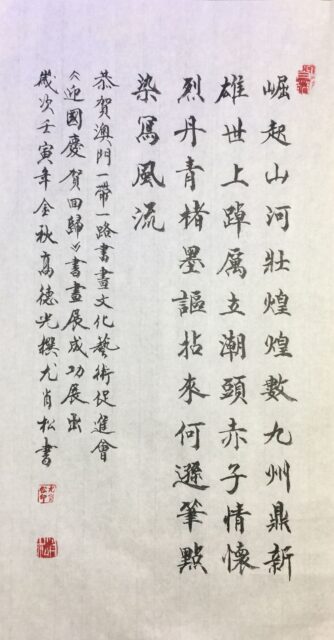 崛起山河壯煌煌數九州鼎新
雄世上踔厲立潮頭赤子情懷
烈丹青楮墨謳拈來何遜筆點
染寫風流
恭賀澳門一帶一路書畫文化藝術促進會
《迎國慶賀回歸》書畫展成功展出
歲次壬寅年金秋高德光撰尤肖松書